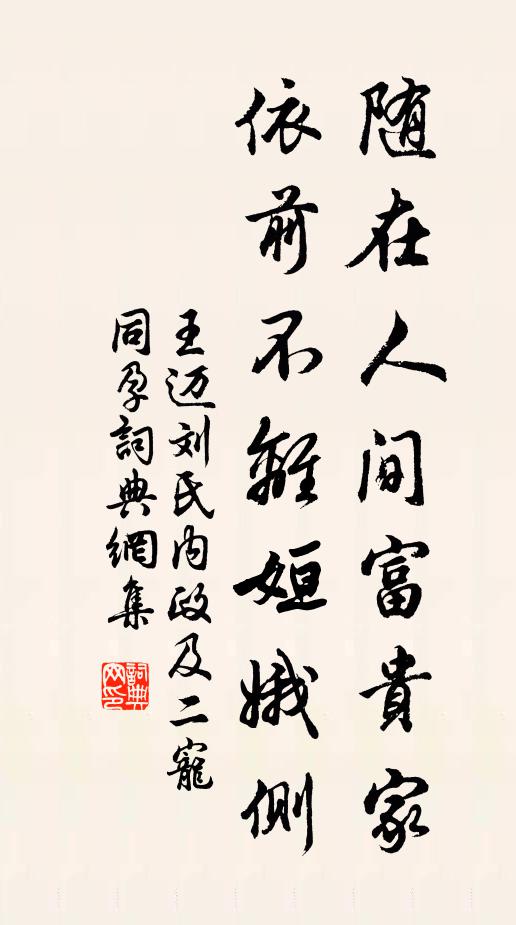 随在人间富貴家
依前不離姮娥側
王迈刘氏内政及二寵
同孕詞典網集
詞典
网印